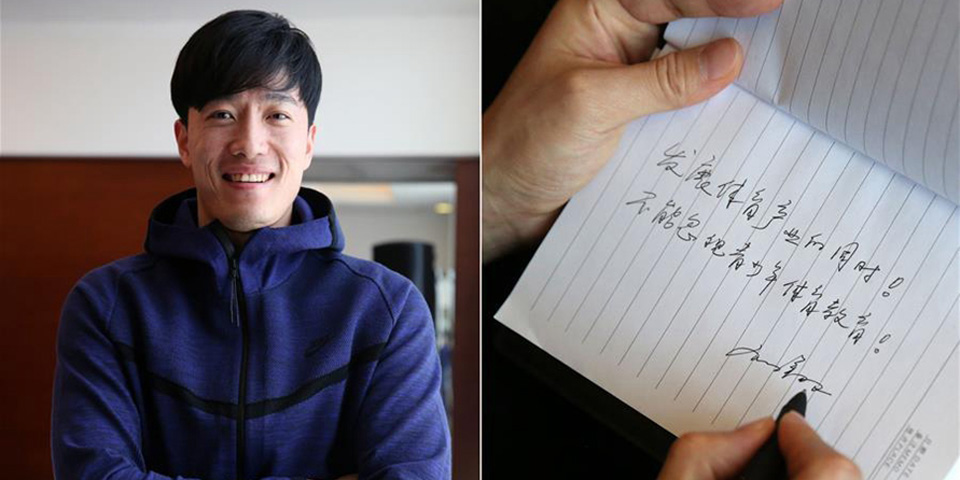 发展体育产业的同时！
不能忽视青少年体育教育！
日期/DATE